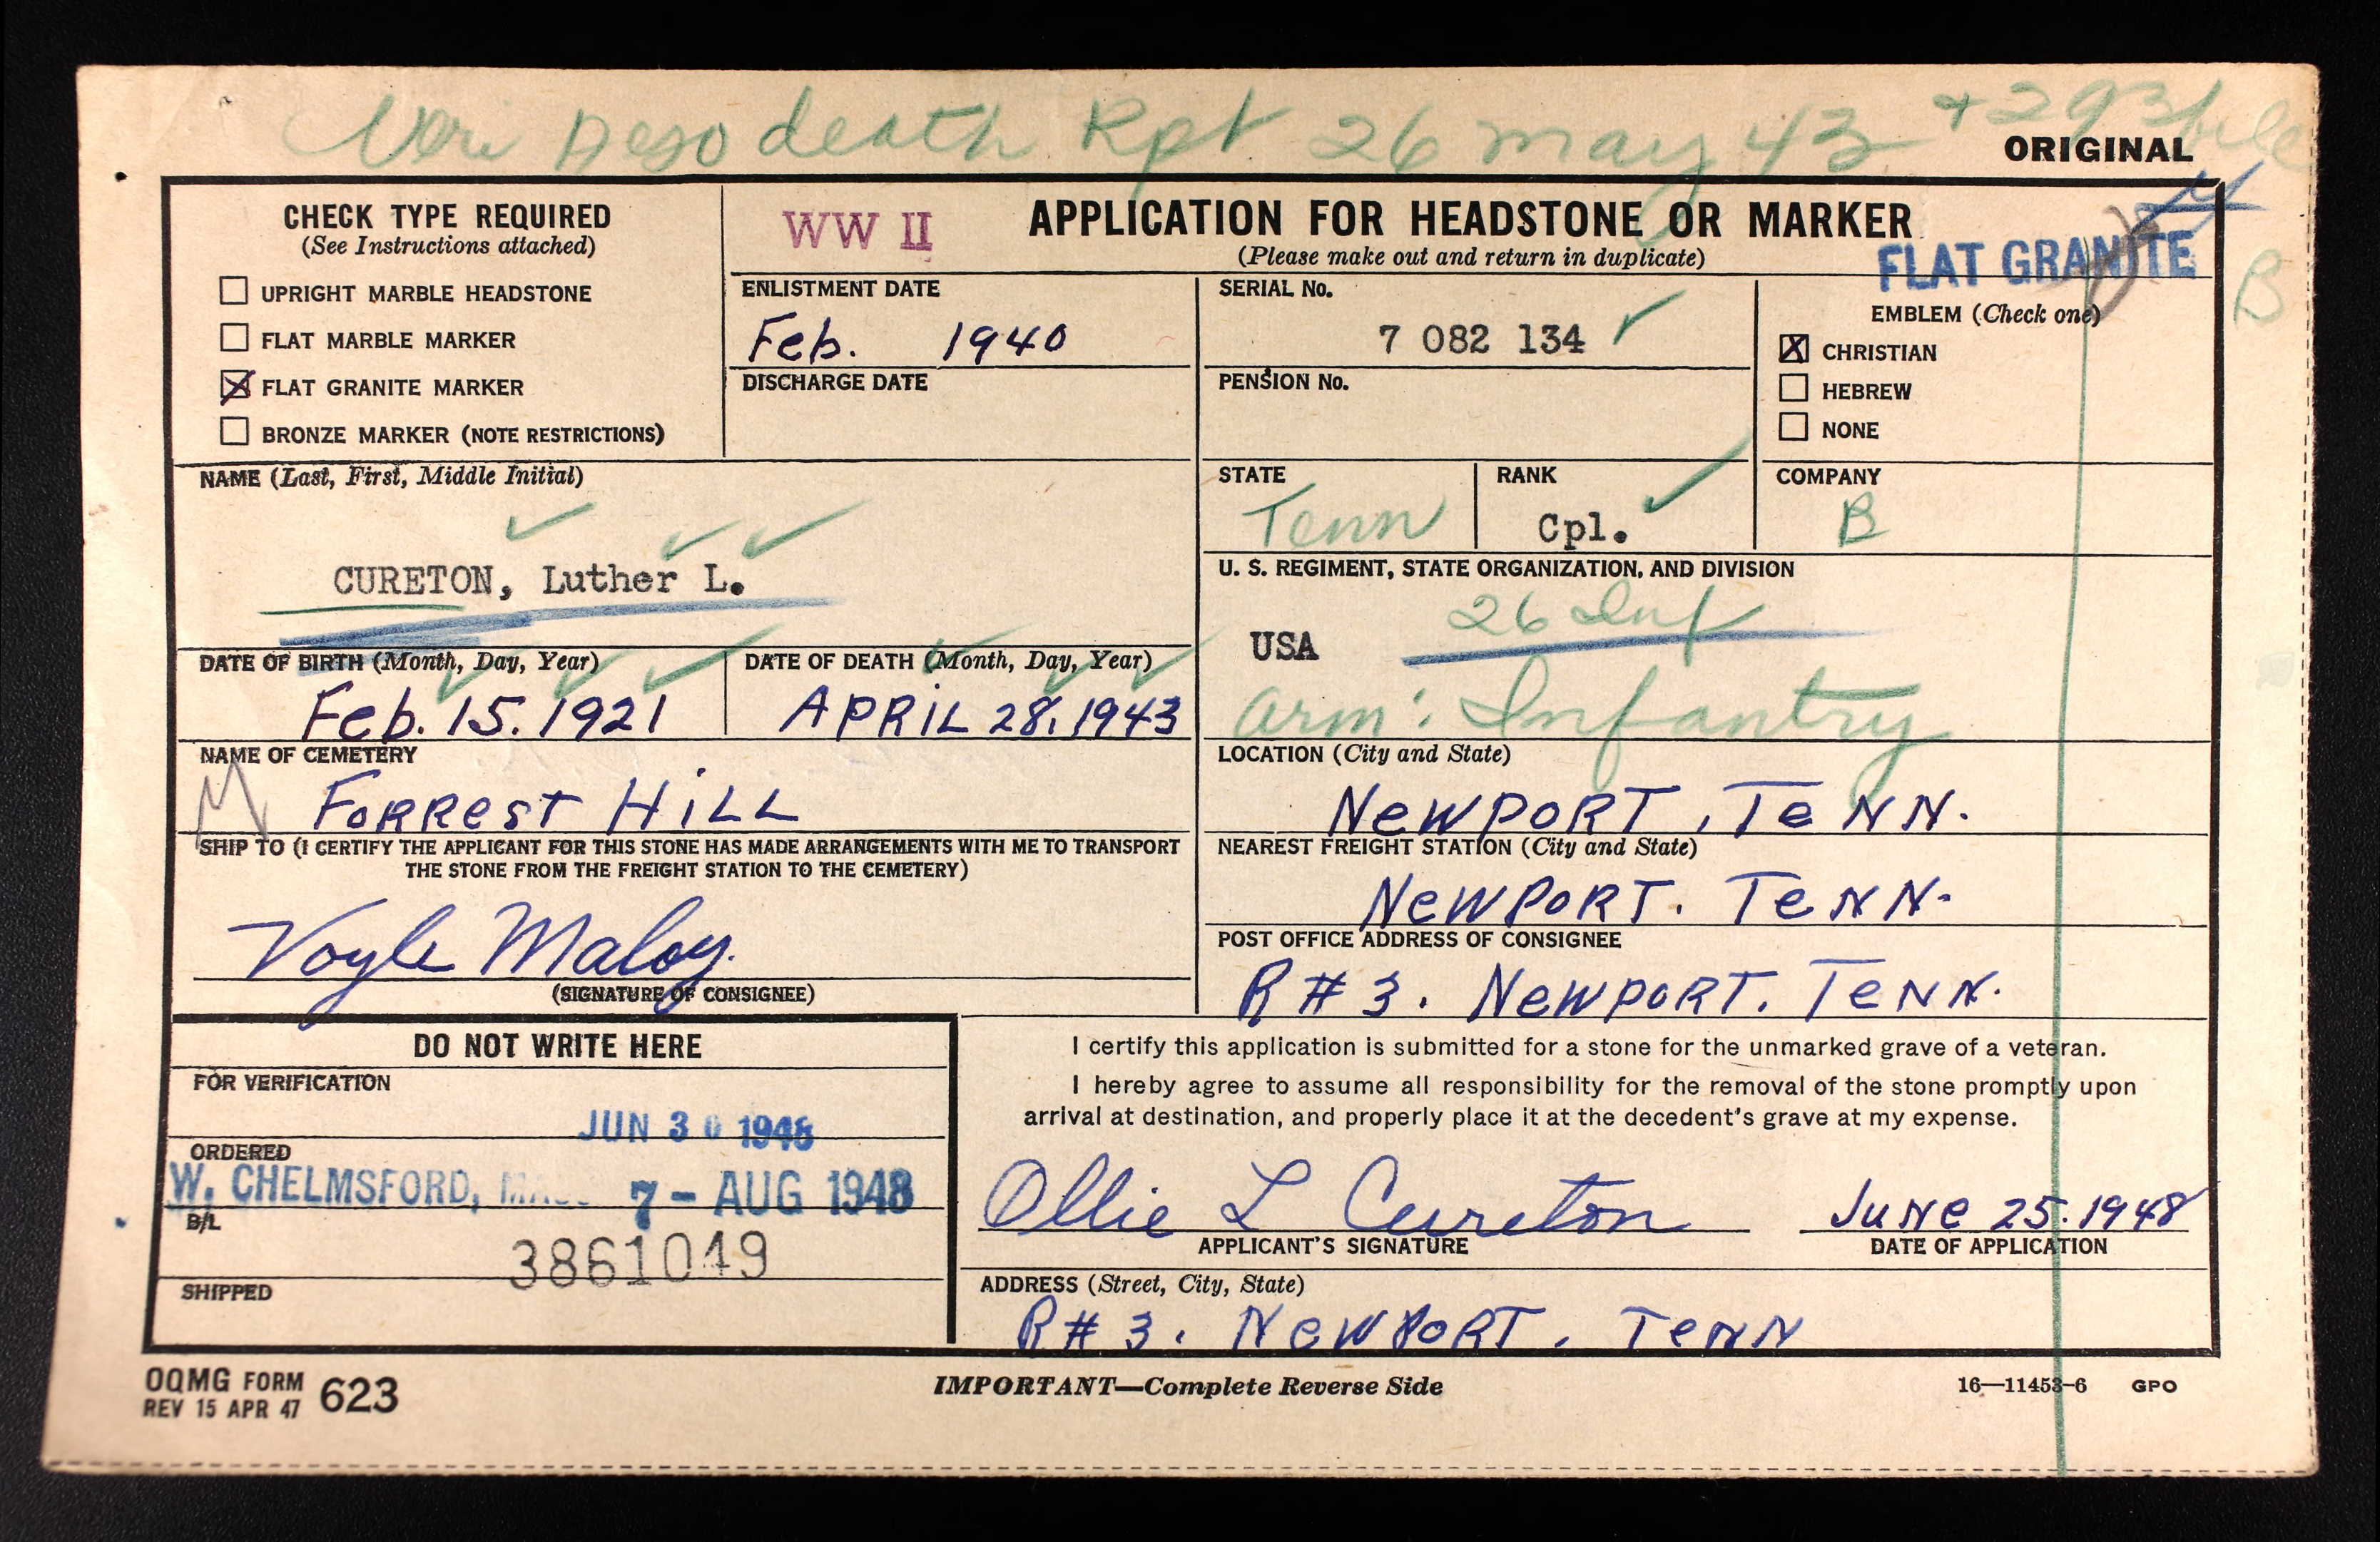 Veri death Rpt 26 may 43 + 293 file
ORIGINAL
CHECK TYPE REQUIRED
(See Instructions attached)
UPRIGHT MARBLE HEADSTONE
FLAT MARBLE MARKER
X FLAT GRANITE MARKER
BRONZE MARKER (NOTE RESTRICTIONS)
WW II
APPLICATION FOR HEADSTONE OR MARKER
(Please make out and return in duplicate)
FLAT GRANITE
B
ENLISTMENT DATE
Feb. 1940
DISCHARGE DATE
SERIAL No.
7 082 134
PENSION No.
EMBLEM (Check one)
X CHRISTIAN
HEBREW
NONE
NAME (Last, First, Middle Initial)
CURETON, Luther L.
STATE
Tenn
RANK
Cpl.
COMPANY
B
U. S. REGIMENT, STATE ORGANIZATION, AND DIVISION
26 Inf
USA
arm: Infantry
DATE OF BIRTH (Month, Day, Year)
Feb. 15. 1921
DATE OF DEATH (Month, Day, Year)
APRiL 28. 1943
NAME OF CEMETERY
FORReST HiLL
LOCATION (City and State)
NewPORT, TeNN.
SHIP TO (I CERTIFY THE APPLICANT FOR THIS STONE HAS MADE ARRANGEMENTS WITH ME TO TRANSPORT
THE STONE FROM THE FREIGHT STATION TO THE CEMETERY)
Voyle Maloy.
(SIGNATURE OF CONSIGNEE)
NEAREST FREIGHT STATION (City and State)
NewPORT. TeNN.
POST OFFICE ADDRESS OF CONSIGNEE
R#3. NewPORT. TeNN.
DO NOT WRITE HERE
FOR VERIFICATION
JUN 30 1948
ORDERED
W. CHELMSFORD, MASS. 7 - AUG 1948
B/L
3861049
SHIPPED
I certify this application is submitted for a stone for the unmarked grave of a veteran.
I hereby agree to assume all responsibility for the removal of the stone promptly upon
arrival at destination, and properly place it at the decedent's grave at my expense.
Ollie L Cureton
APPLICANT'S SIGNATURE
JuNe 25. 1948
DATE OF APPLICATION
ADDRESS (Street, City, State)
R#3. NewPORT. TeNN
OQMG FORM 623
REV 15 APR 47
IMPORTANT—Complete Reverse Side
16—11453-6 GPO